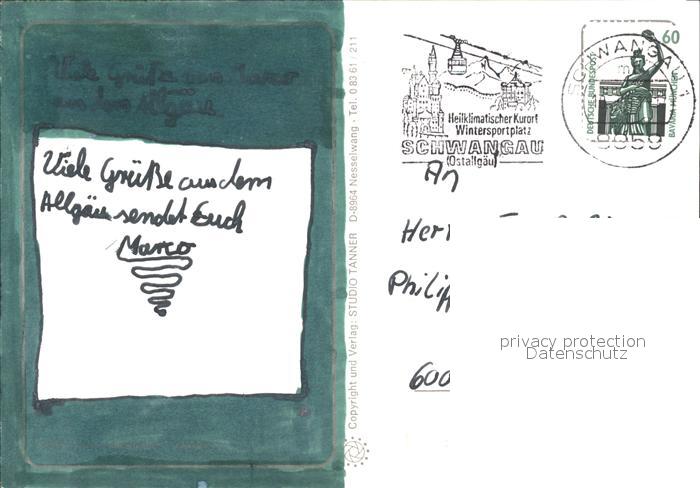 Viele Grüße von Marco
aus dem Allgäu
Viele Grüße aus dem
Allgäu sendet Euch
Marco
Copyright und Verlag: STUDIO TANNER D-8964 Nesselwang · Tel. 0 83 61 / 211
Heilklimatischer Kurort
Wintersportplatz
SCHWANGAU
(Ostallgäu)
SCHWANGAU 1
8959
60
DEUTSCHE BUNDESPOST
An
Her
Phili
600
privacy protection
Datenschutz